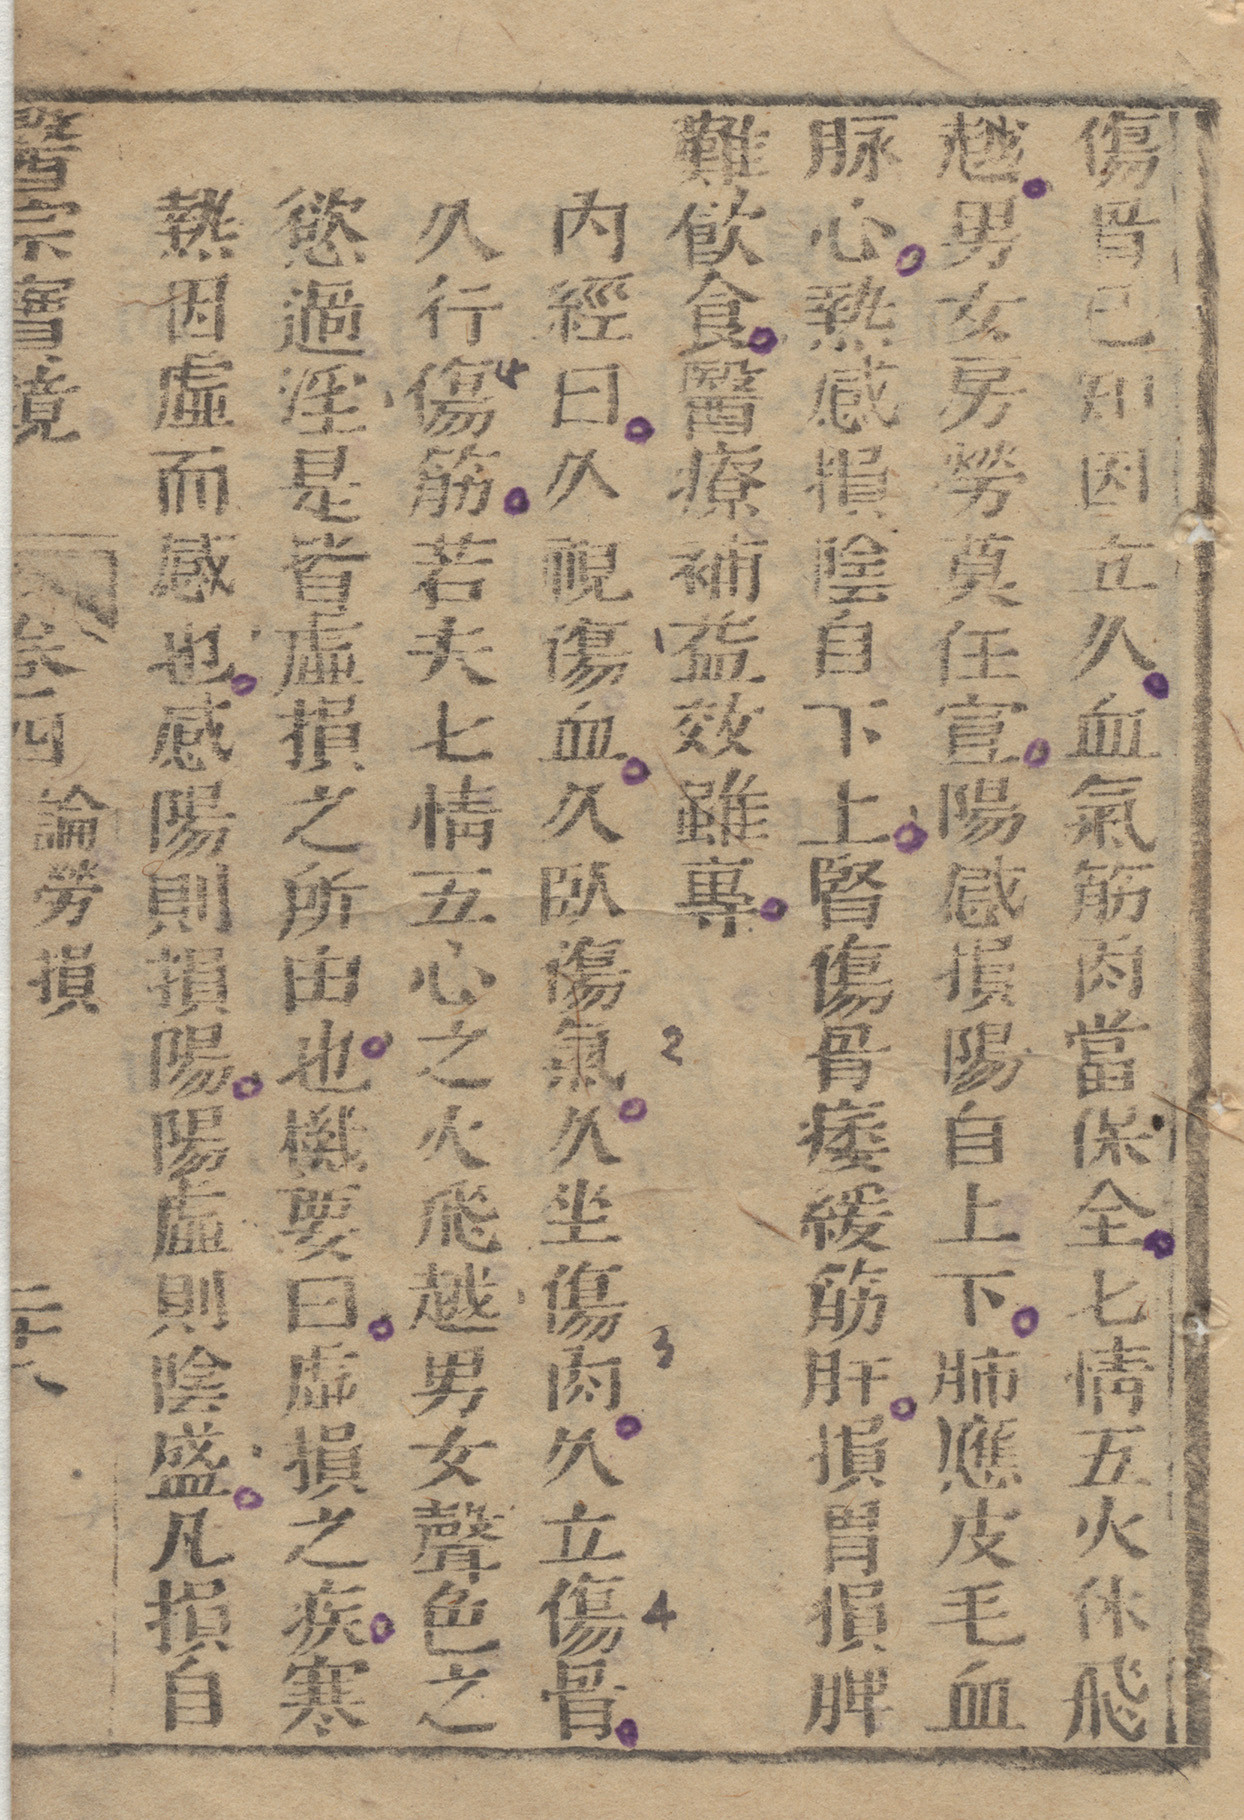 傷骨已知因立久血氣筋肉當保全七情五火休飛
越男女房勞莫任宣陽感損陽自上下肺應皮毛血
脉心熱感損陰自下上腎傷骨痿緩筋肝損胃損脾
難飲食醫療補益效雖專
內經曰久視傷血久臥傷氣久坐傷肉久立傷骨
2
3
4
久行傷筋若夫七情五心之火飛越男女聲色之
慾過淫是皆虛損之所由也機要曰虛損之疾寒
熱因虛而感也感陽則損陽陽虛則陰盛凡損自
醫宗寶鏡 卷四 論勞損 二十八